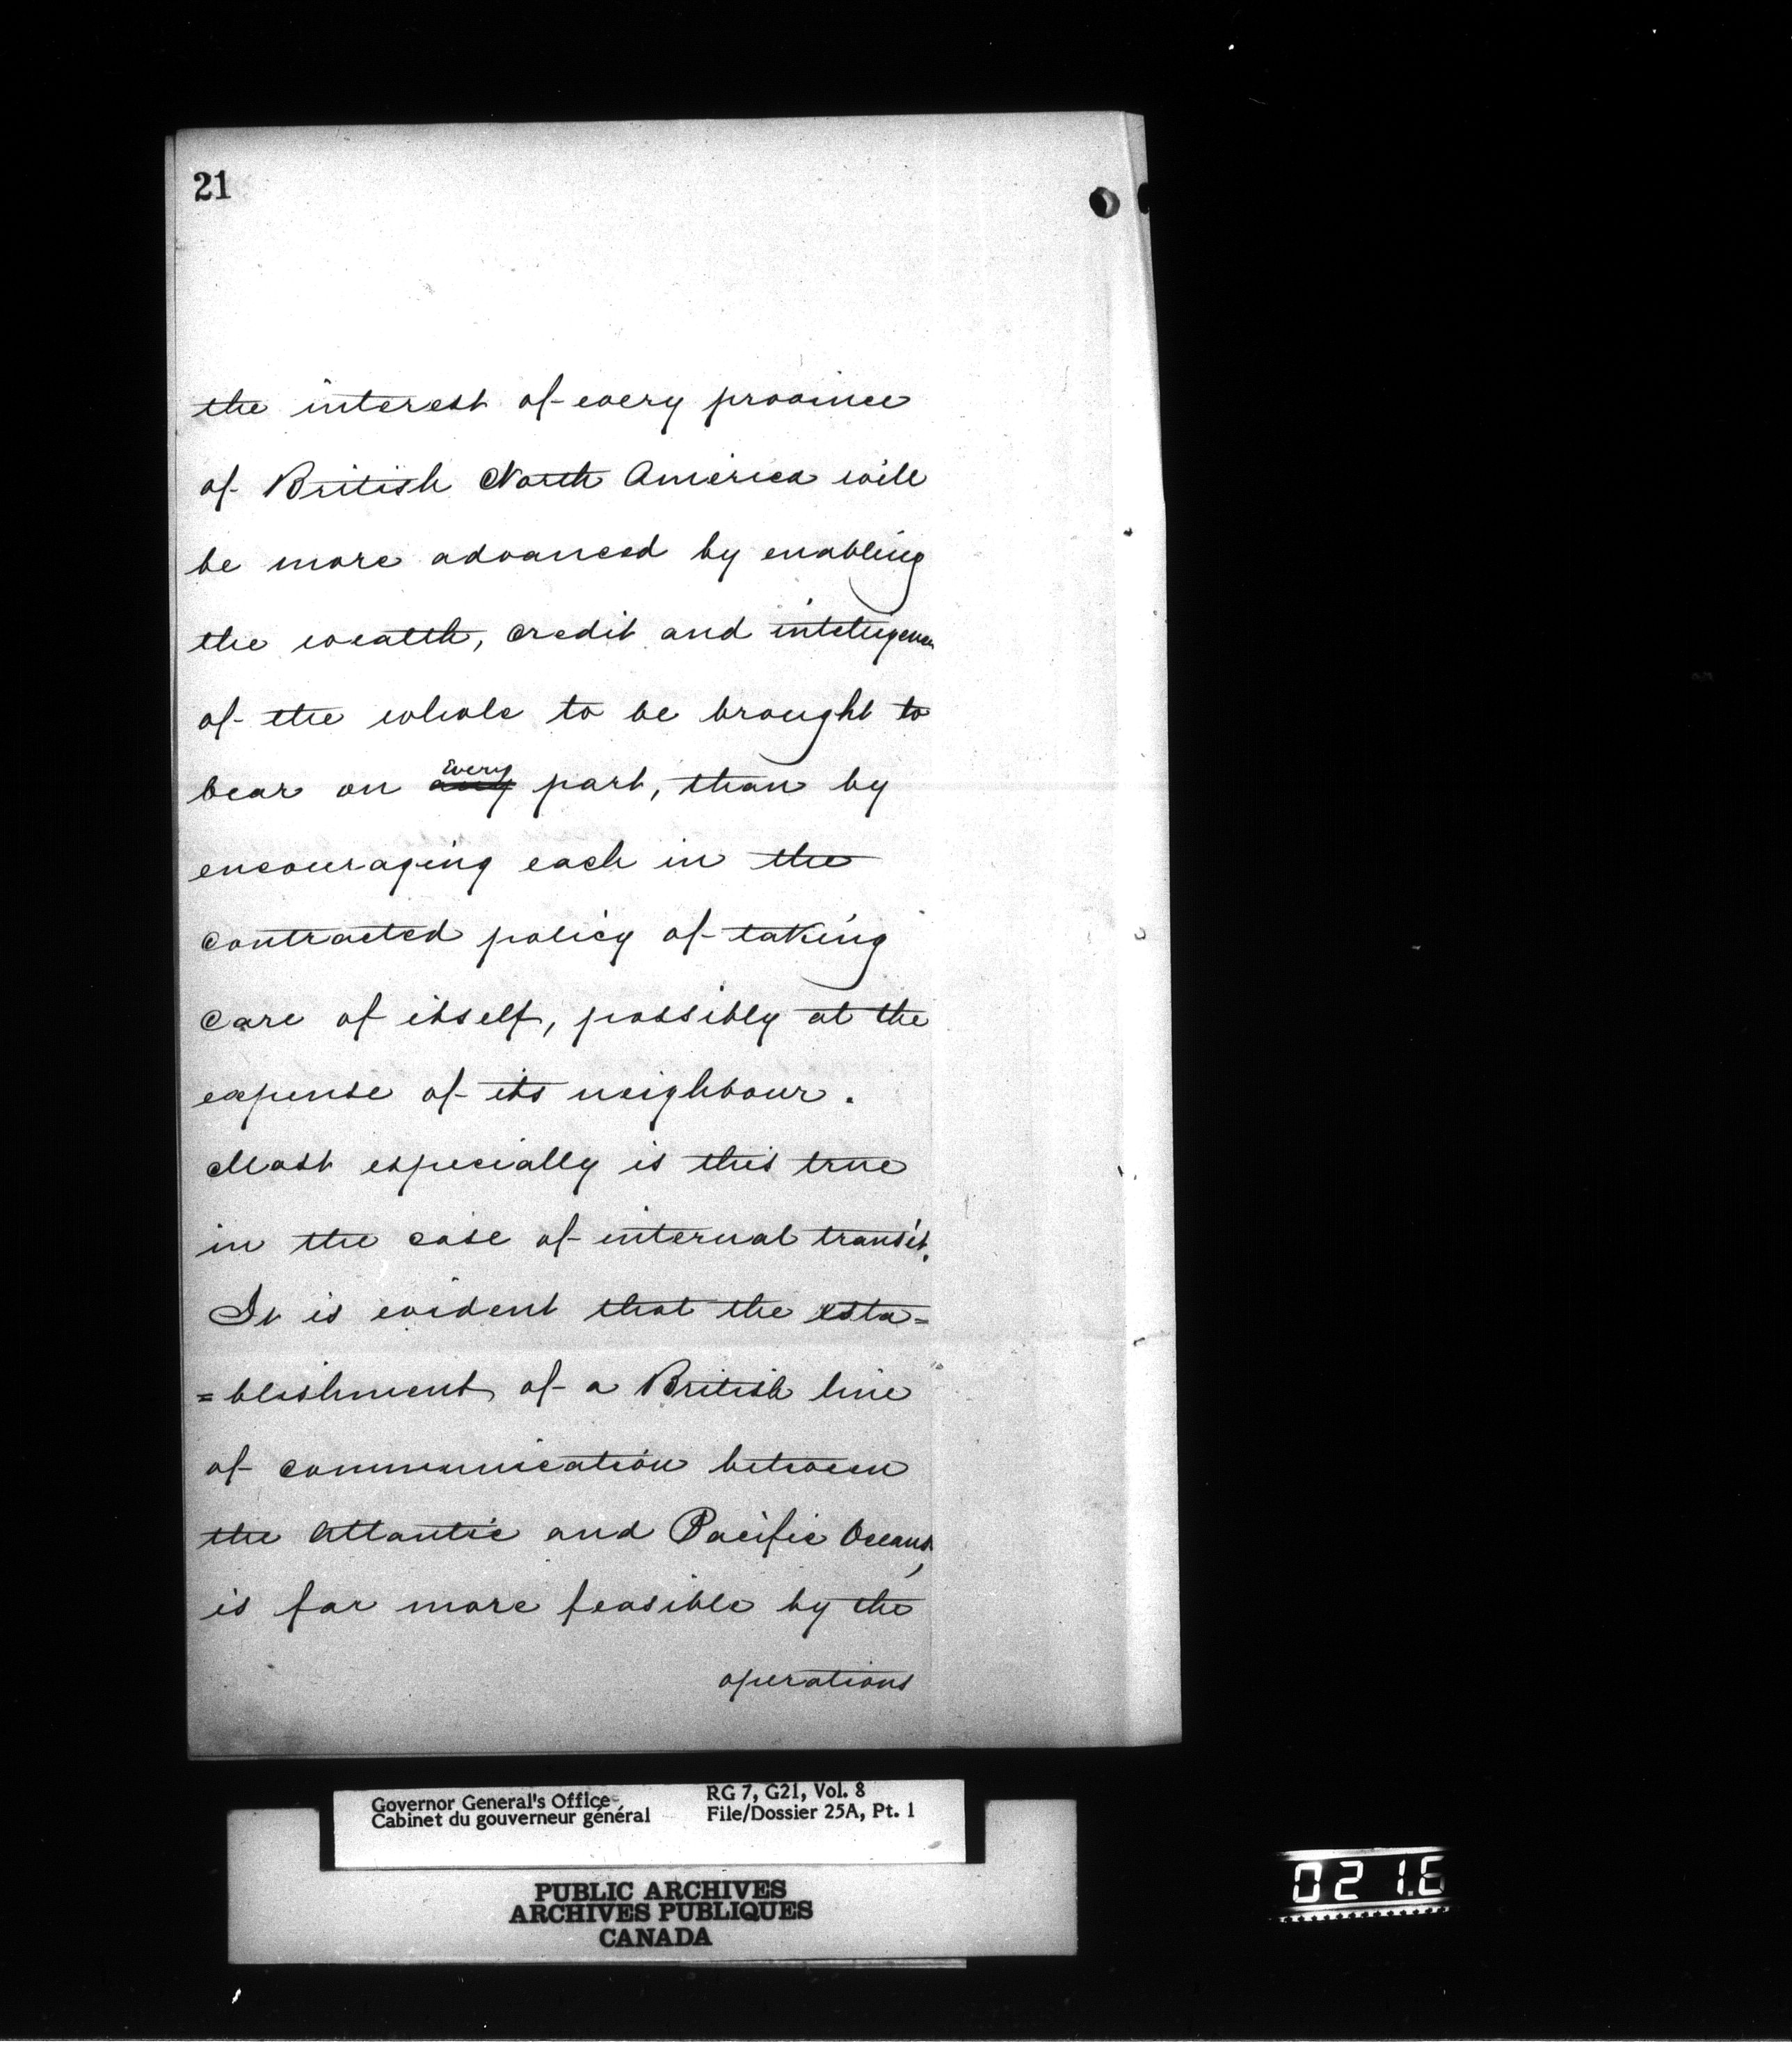 21
the interest of every province
of British North America will
be more advanced by enabling
the wealth, credit and intelligence
of the whole to be brought to
Every
bear on any part, than by
encouraging each in the
contracted policy of taking
care of itself, possibly at the
expense of its neighbour.
Most especially is this true
in the case of internal transit.
It is evident that the esta=
=blishment of a British line
of communication between
the Atlantic and Pacific Oceans,
is far more feasible by the
operations
Governor General's Office RG 7, G21, Vol. 8
Cabinet du gouverneur général File/Dossier 25A, Pt. 1
PUBLIC ARCHIVES
ARCHIVES PUBLIQUES
CANADA
021.6